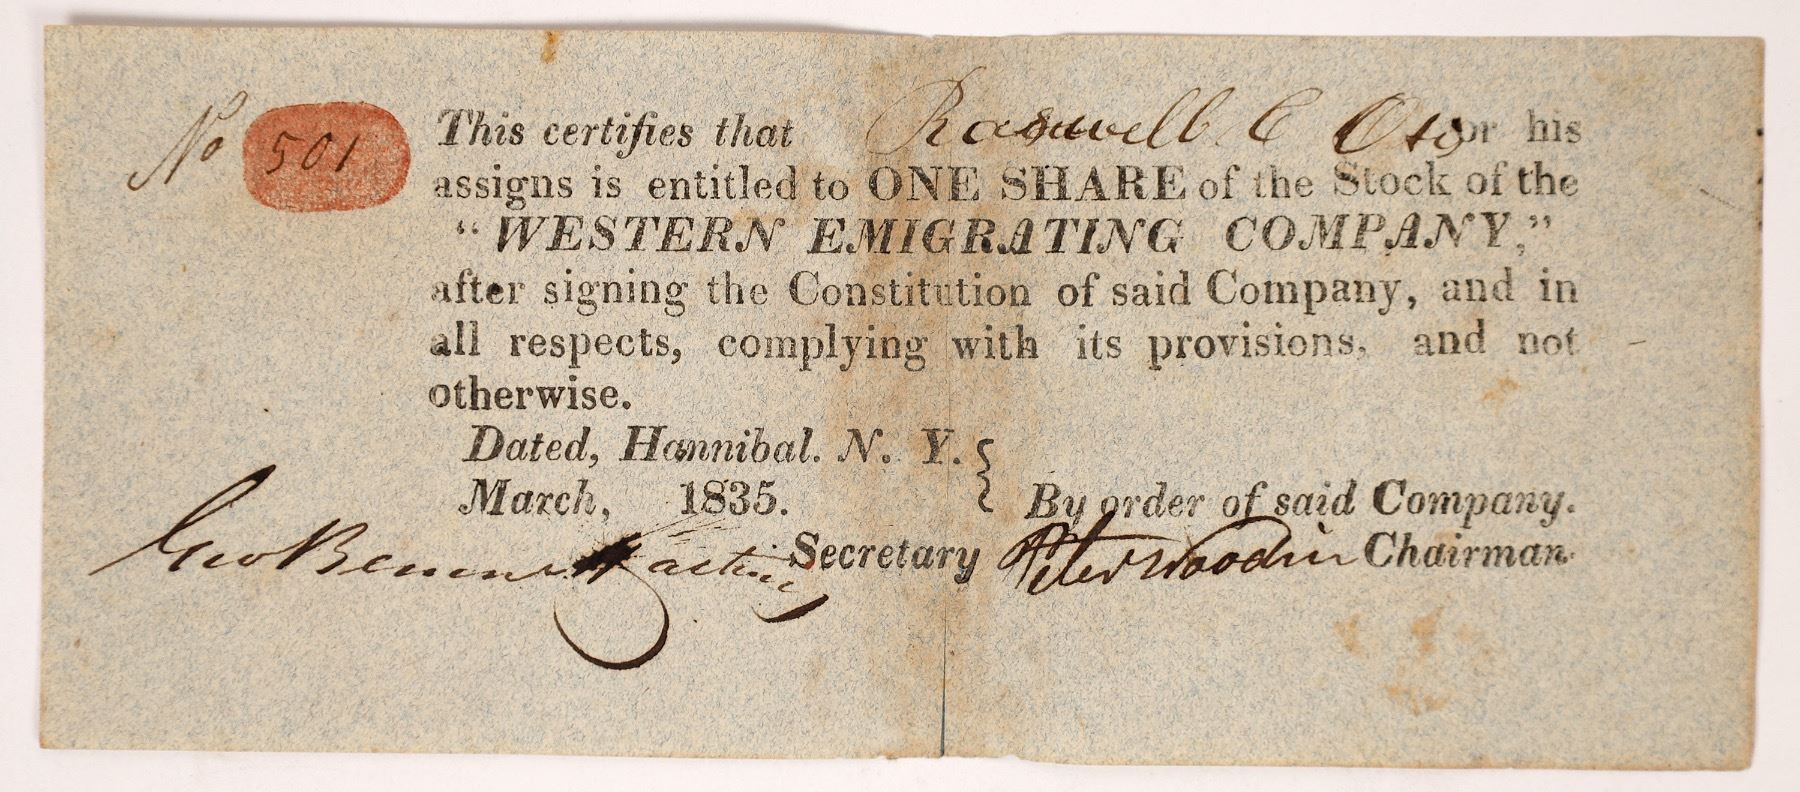 No 501
This certifies that Roswell C Otis or his
assigns is entitled to ONE SHARE of the Stock of the
"WESTERN EMIGRATING COMPANY,"
after signing the Constitution of said Company, and in
all respects, complying with its provisions, and not
otherwise.
Dated, Hannibal. N. Y. }
March, 1835. By order of said Company.
Geo acting Secretary Peter Woodin Chairman.